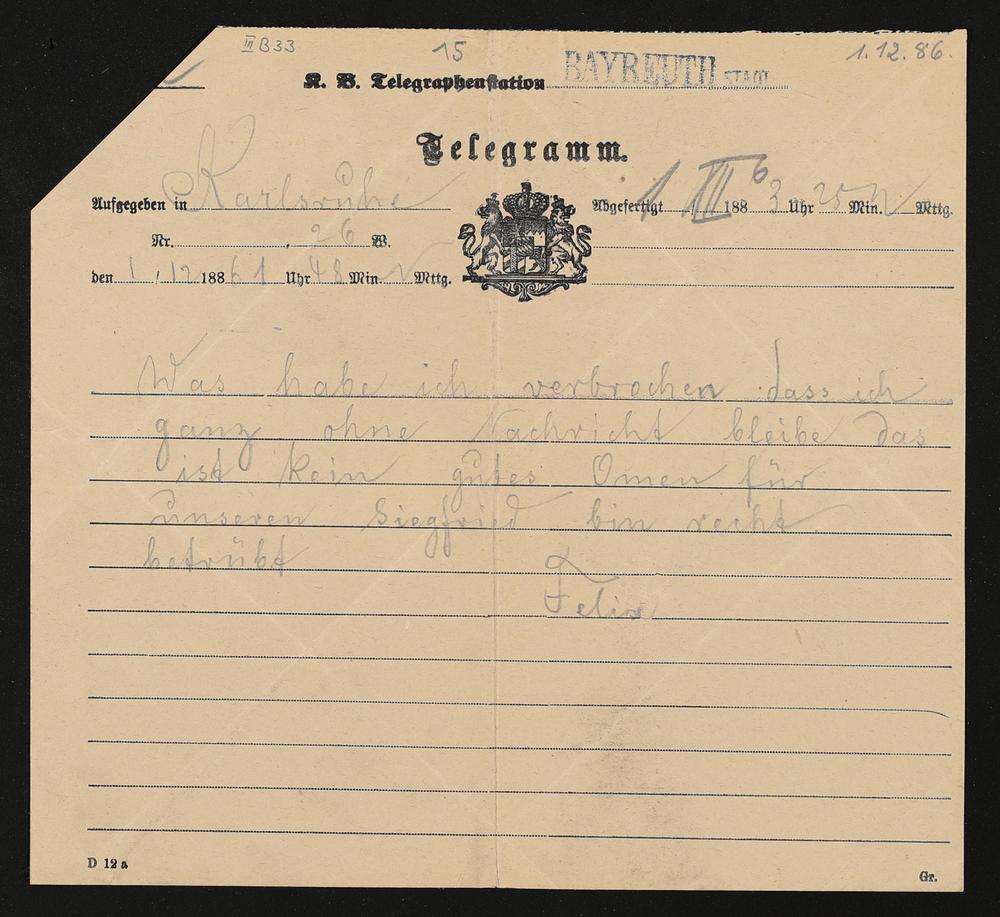 III B33 15 1.12.86.
K. B. Telegraphenstation BAYREUTH STADT
Telegramm.
Aufgegeben in Karlsruhe
Abgefertigt 1 XII 1886 3 Uhr 25 Min. N Mttg.
Nr. , 26 W.
den 1 / 12 1886 1 Uhr 48 Min. N Mttg.
Was habe ich verbrochen dass ich
ganz ohne Nachricht bleibe das
ist kein gutes Omen für
unseren Siegfried bin recht
betrübt
Felix
D 12 a Gr.